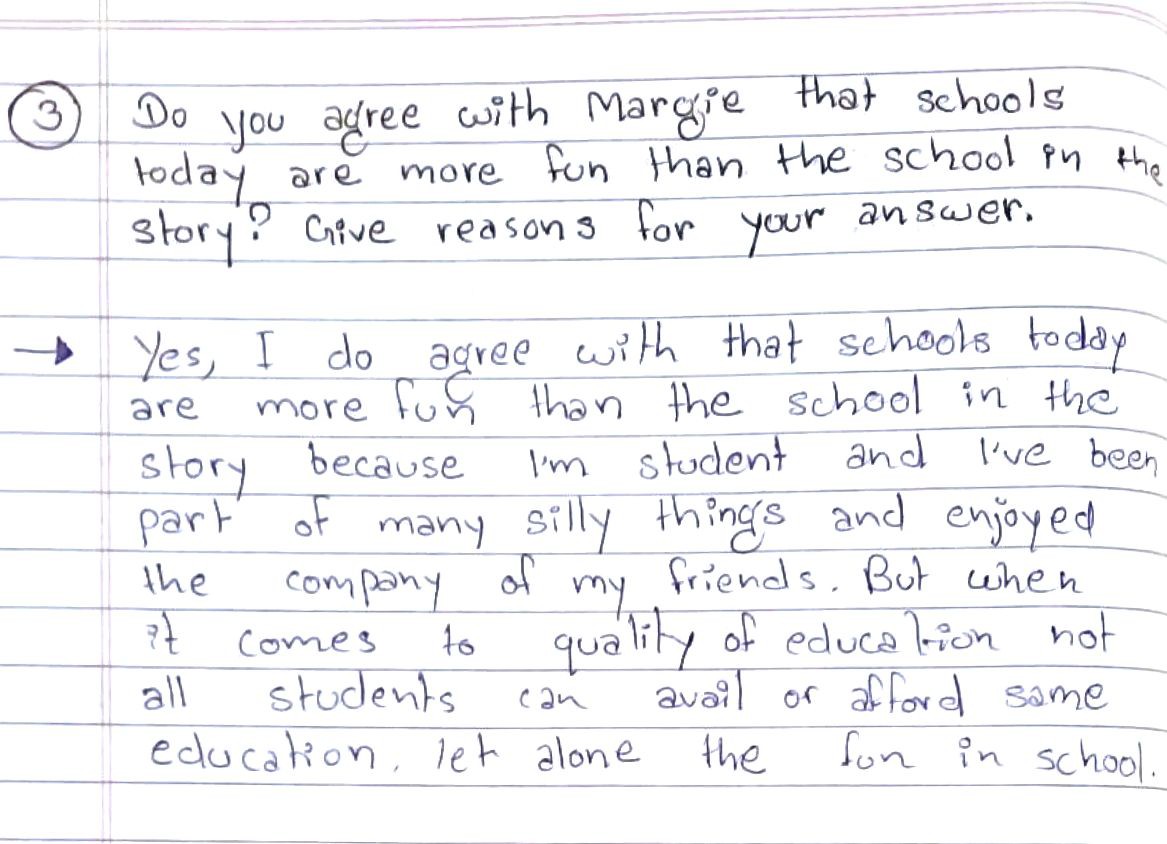 3 Do you agree with Margie that schools
today are more fun than the school in the
story? Give reasons for your answer.
→ Yes, I do agree with that schools today
are more fun than the school in the
story because I'm student and I've been
part of many silly things and enjoyed
the company of my friends. But when
it comes to quality of education not
all students can avail or afford same
education, let alone the fun in school.